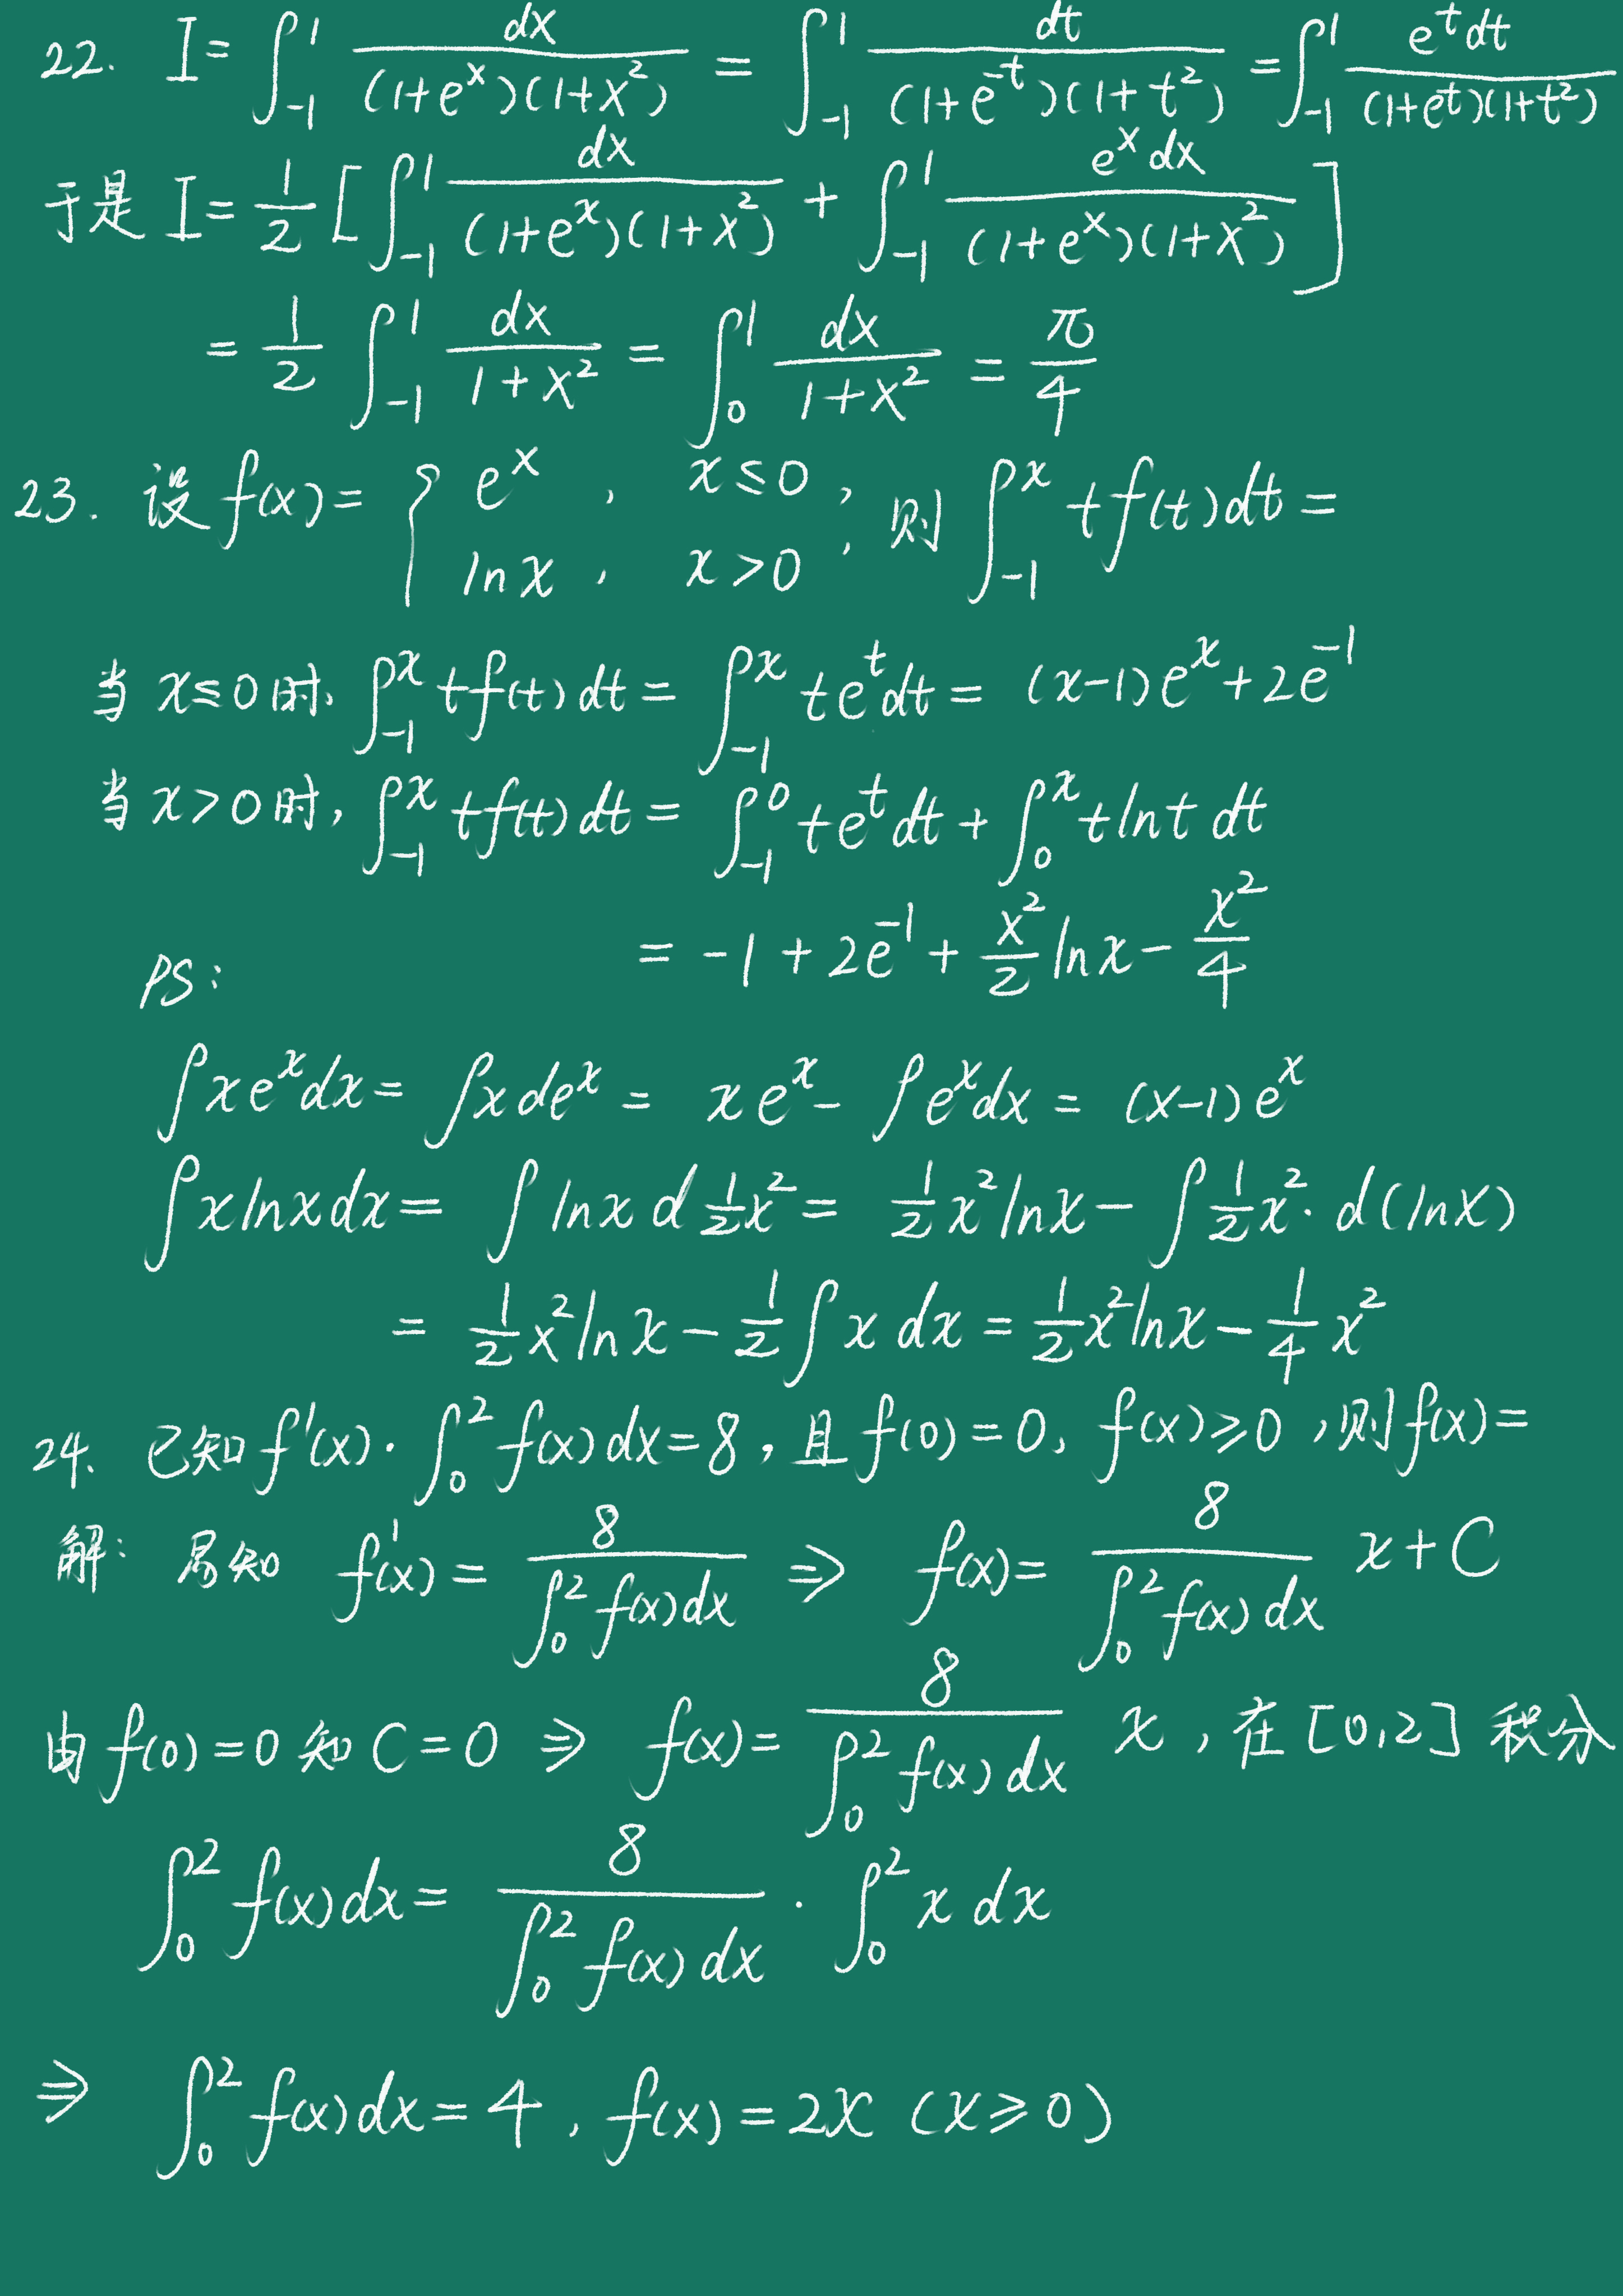 22. I = ∫_{-1}^{1} dx/((1+e^x)(1+x^2)) = ∫_{-1}^{1} dt/((1+e^{-t})(1+t^2)) = ∫_{-1}^{1} e^t dt/((1+e^t)(1+t^2))
于是 I = 1/2 [∫_{-1}^{1} dx/((1+e^x)(1+x^2)) + ∫_{-1}^{1} e^x dx/((1+e^x)(1+x^2))]
= 1/2 ∫_{-1}^{1} dx/(1+x^2) = ∫_{0}^{1} dx/(1+x^2) = π/4
23. 设 f(x) = { e^x , x≤0 ; ln x , x>0 , 则 ∫_{-1}^{x} t f(t) dt =
当 x≤0 时, ∫_{-1}^{x} t f(t) dt = ∫_{-1}^{x} t e^t dt = (x-1)e^x + 2e^{-1}
当 x>0 时, ∫_{-1}^{x} t f(t) dt = ∫_{-1}^{0} t e^t dt + ∫_{0}^{x} t ln t dt
= -1 + 2e^{-1} + x^2/2 ln x - x^2/4
PS:
∫ x e^x dx = ∫ x de^x = x e^x - ∫ e^x dx = (x-1) e^x
∫ x ln x dx = ∫ ln x d 1/2 x^2 = 1/2 x^2 ln x - ∫ 1/2 x^2 · d(ln x)
= 1/2 x^2 ln x - 1/2 ∫ x dx = 1/2 x^2 ln x - 1/4 x^2
24. 已知 f'(x) · ∫_{0}^{2} f(x) dx = 8, 且 f(0) = 0, f(x) ≥ 0, 则 f(x) =
解: 易知 f'(x) = 8/(∫_{0}^{2} f(x) dx) ⇒ f(x) = 8/(∫_{0}^{2} f(x) dx) x + C
由 f(0) = 0 知 C = 0 ⇒ f(x) = 8/(∫_{0}^{2} f(x) dx) x , 在 [0,2] 积分
∫_{0}^{2} f(x) dx = 8/(∫_{0}^{2} f(x) dx) · ∫_{0}^{2} x dx
⇒ ∫_{0}^{2} f(x) dx = 4 , f(x) = 2x (x≥0)